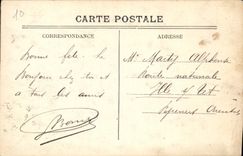 10
CARTE POSTALE
CORRESPONDANCE
ADRESSE
Bonne fête. Le
Bonjour chez toi et
à tous les amis
Mr Martys Alphonse
Route nationale
Ille s/ Tet
Pyrénées Orientales